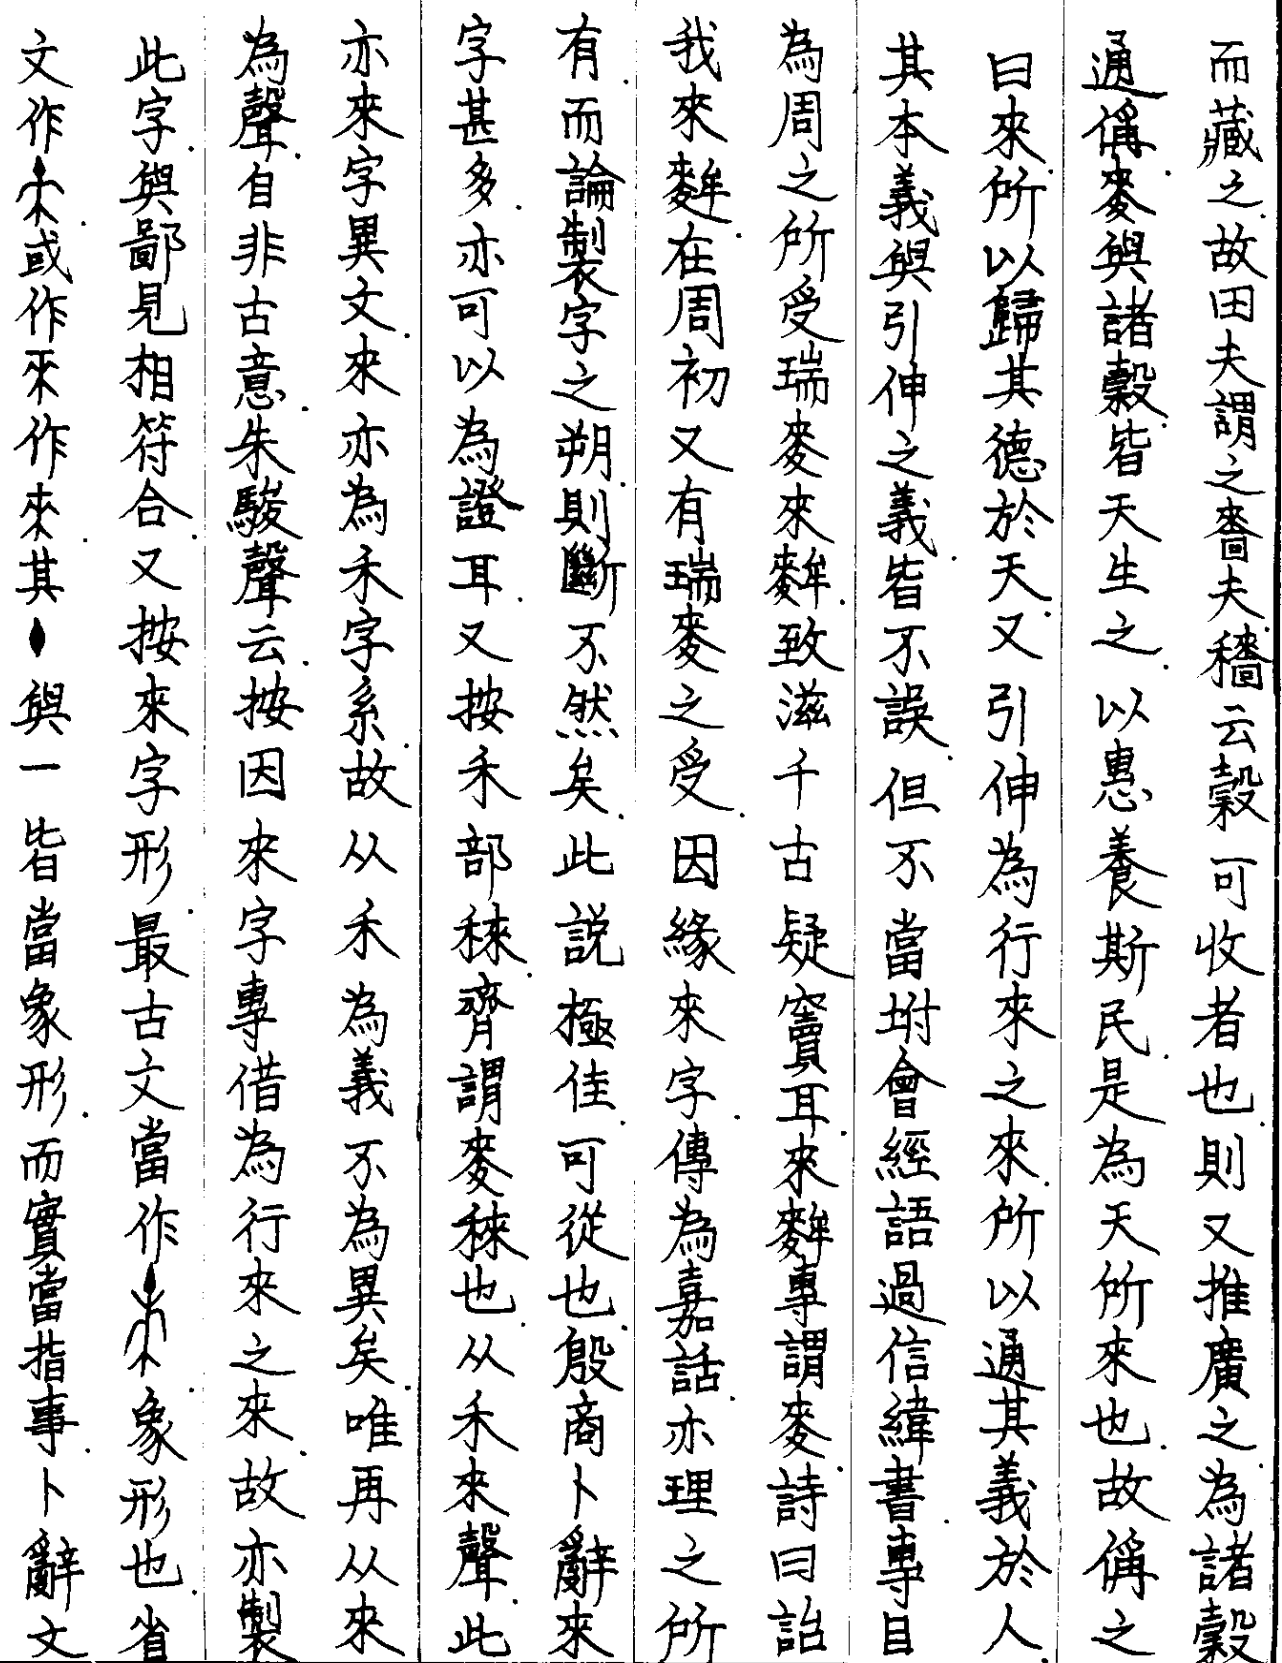 而藏之故田夫謂之嗇夫穡云穀可收者也則又推廣之為諸穀
通偁麥與諸穀皆天生之以惠養斯民是為天所來也故偁之
曰來所以歸其德於天又引伸為行來之來所以通其義於人
其本義與引伸之義皆不誤但不當坿會經語過信緯書專目
為周之所受瑞麥來麰致滋千古疑竇耳來麰專謂麥詩曰詒
我來麰在周初又有瑞麥之受因緣來字傳為嘉話亦理之所
有而論製字之朔則斷不然矣此説極佳可從也殷商卜辭來
字甚多亦可以為證耳又按禾部秾齊謂麥秾也从禾來聲此
亦來字異文來亦為禾字系故从禾為義不為異矣唯再从來
為聲自非古意朱駿聲云按因來字專借為行來之來故亦製
此字與鄙見相符合又按來字形最古文當作象形也省
文作或作來作來其與一皆當象形而實當指事卜辭文